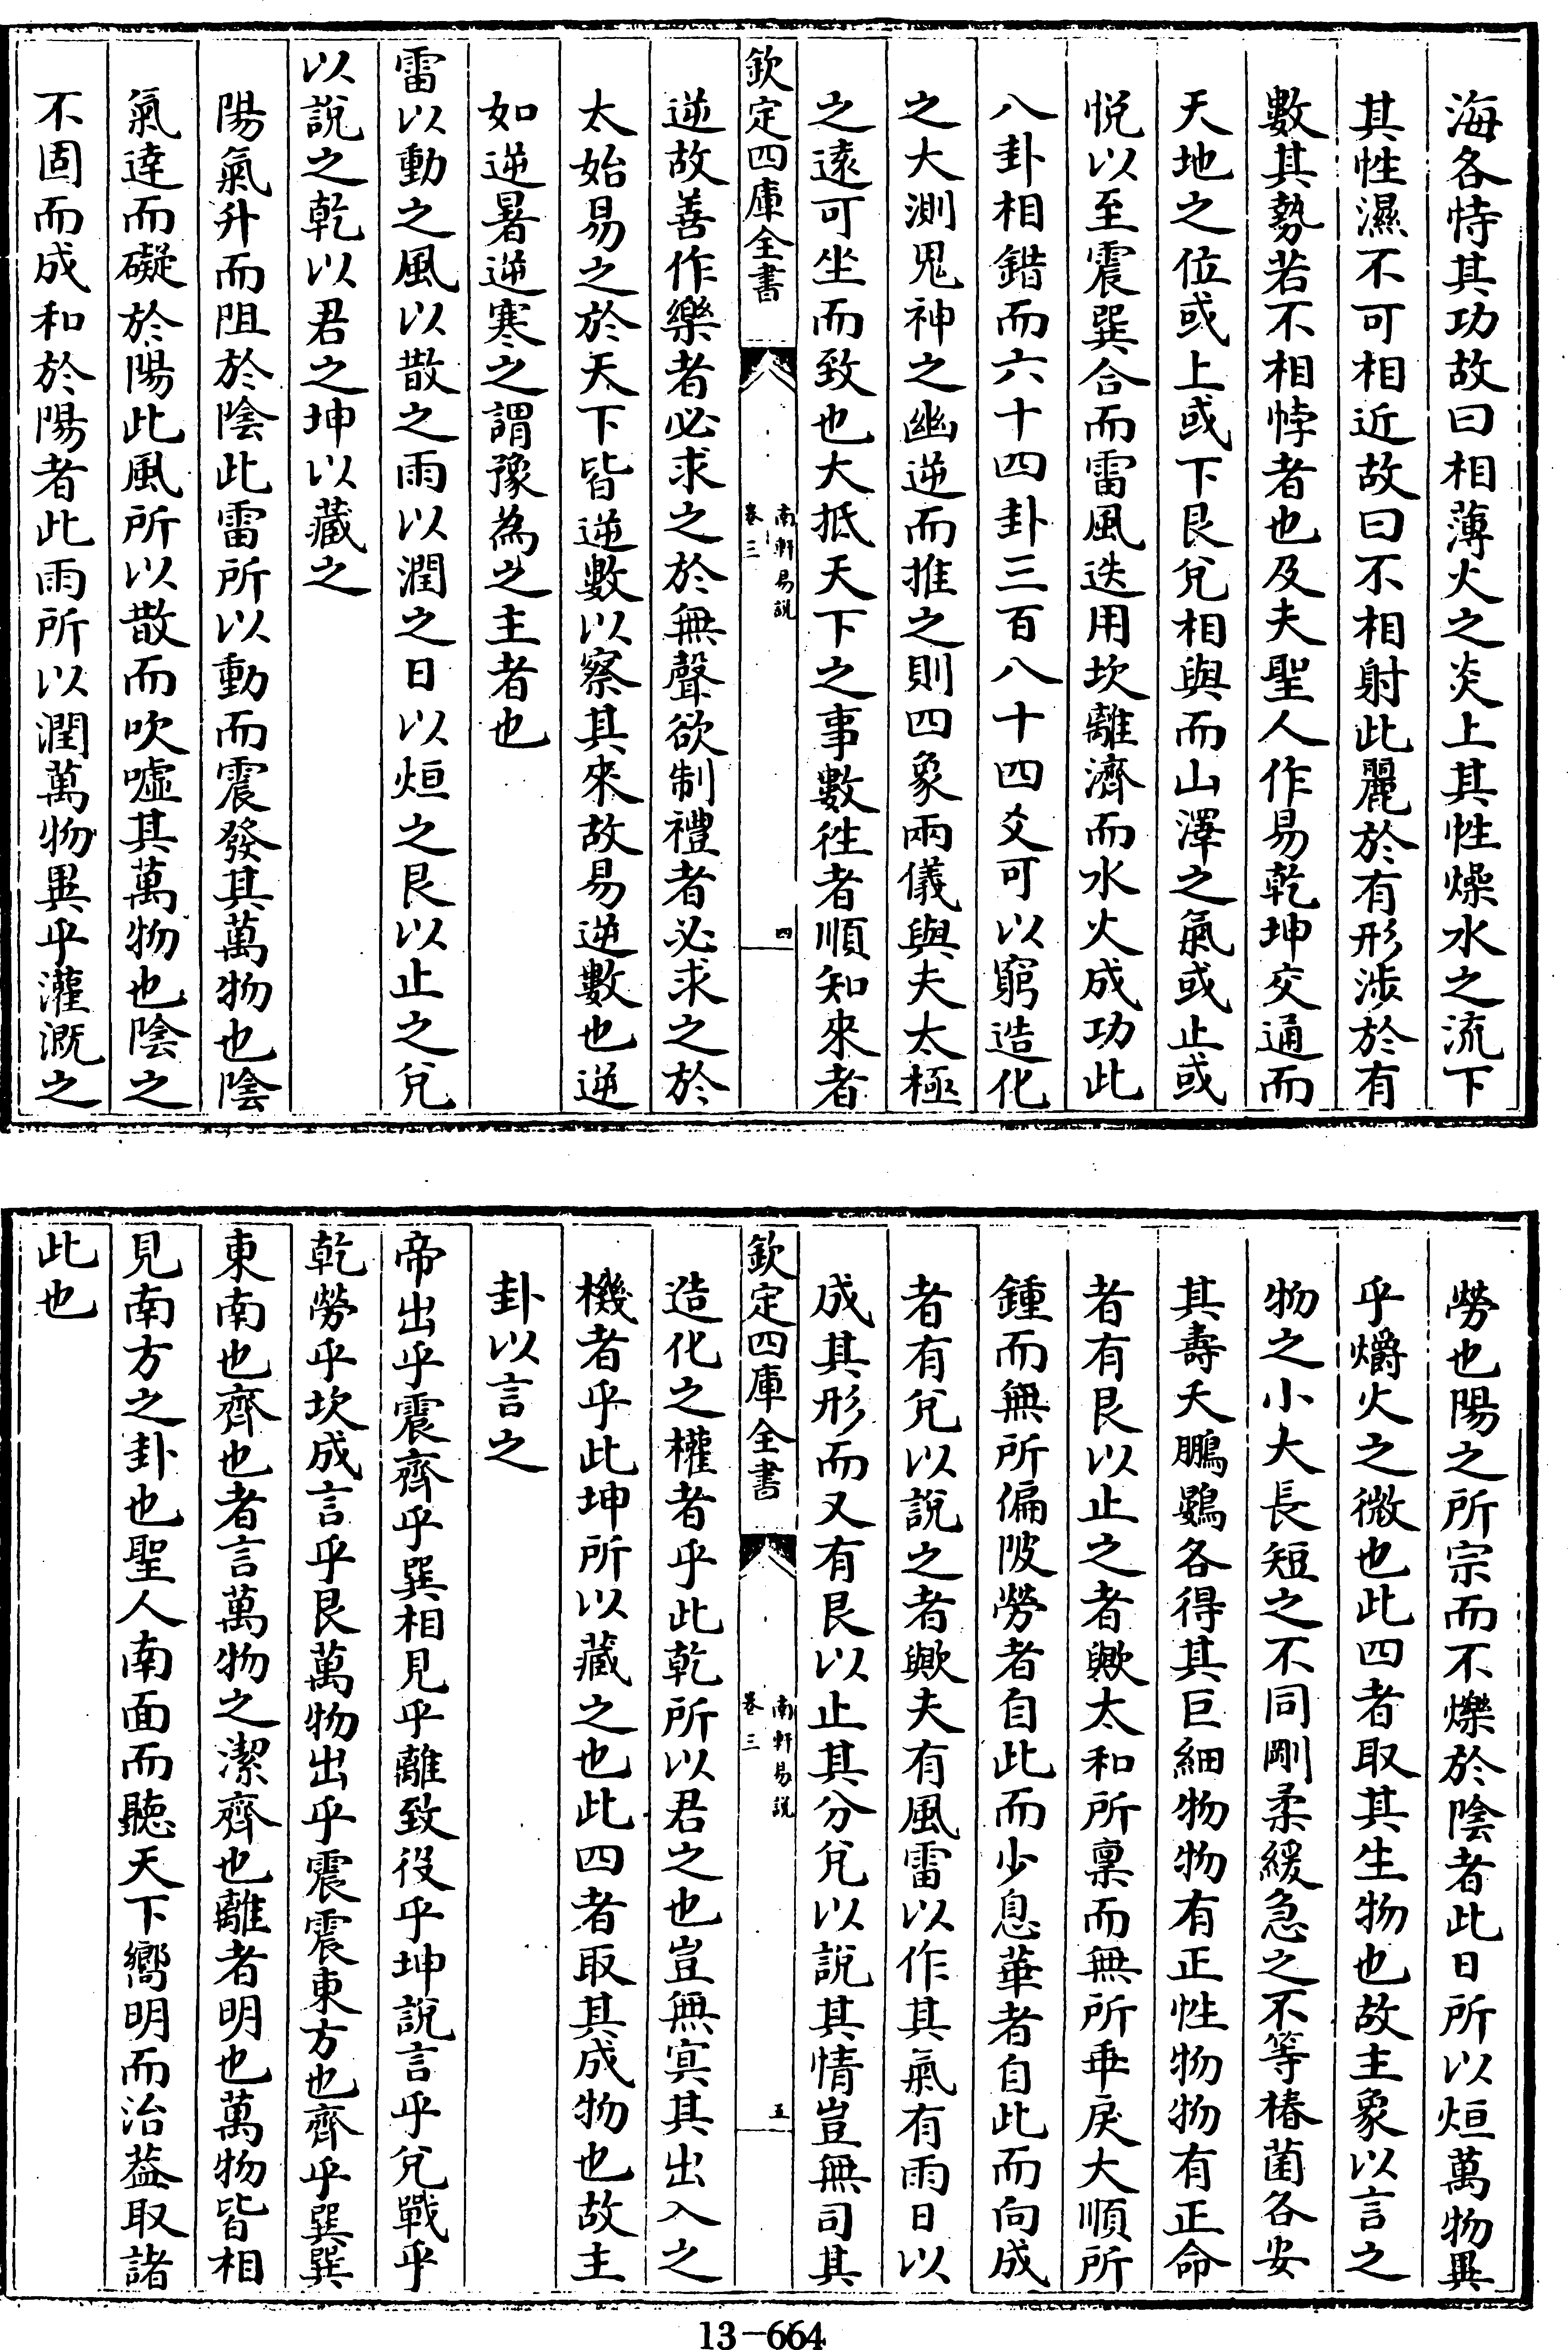 海各恃其功故曰相薄火之炎上其性燥水之流下
其性濕不可相近故曰不相射此麗於有形涉於有
數其勢若不相悖者也及夫聖人作易乾坤交通而
天地之位或上或下艮兌相與而山澤之氣或止或
悦以至震巽合而雷風迭用坎離濟而水火成功此
八卦相錯而六十四卦三百八十四爻可以窮造化
之大測鬼神之幽逆而推之則四象兩儀與夫太極
之遠可坐而致也大抵天下之事數徃者順知來者
欽定四庫全書
南軒易説
卷三
四
逆故善作樂者必求之於無聲欲制禮者必求之於
太始易之於天下皆逆數以察其來故易逆數也逆
如逆暑逆寒之謂豫為之主者也
雷以動之風以散之雨以潤之日以烜之艮以止之兌
以說之乾以君之坤以藏之
陽氣升而阻於陰此雷所以動而震發其萬物也陰
氣達而礙於陽此風所以散而吹嘘其萬物也陰之
不固而成和於陽者此雨所以潤萬物異乎灌溉之
勞也陽之所宗而不爍於陰者此日所以烜萬物異
乎爝火之微也此四者取其生物也故主象以言之
物之小大長短之不同剛柔緩急之不等椿菌各安
其壽夭鵬鷃各得其巨細物物有正性物物有正命
者有艮以止之者歟太和所稟而無所乖戾大順所
鍾而無所偏陂勞者自此而少息華者自此而向成
者有兌以說之者歟夫有風雷以作其氣有雨日以
成其形而又有艮以止其分兌以說其情豈無司其
欽定四庫全書
南軒易説
卷三
五
造化之權者乎此乾所以君之也豈無寘其出入之
機者乎此坤所以藏之也此四者取其成物也故主
卦以言之
帝出乎震齊乎巽相見乎離致役乎坤說言乎兌戰乎
乾勞乎坎成言乎艮萬物出乎震震東方也齊乎巽巽
東南也齊也者言萬物之潔齊也離者明也萬物皆相
見南方之卦也聖人南面而聽天下嚮明而治葢取諸
此也
13-664